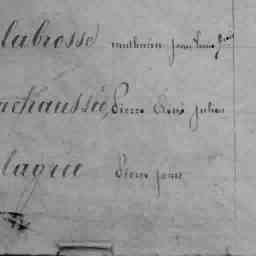 labrosse mathurin jean
achaussée, Pierre René julien
lague Pierre jean